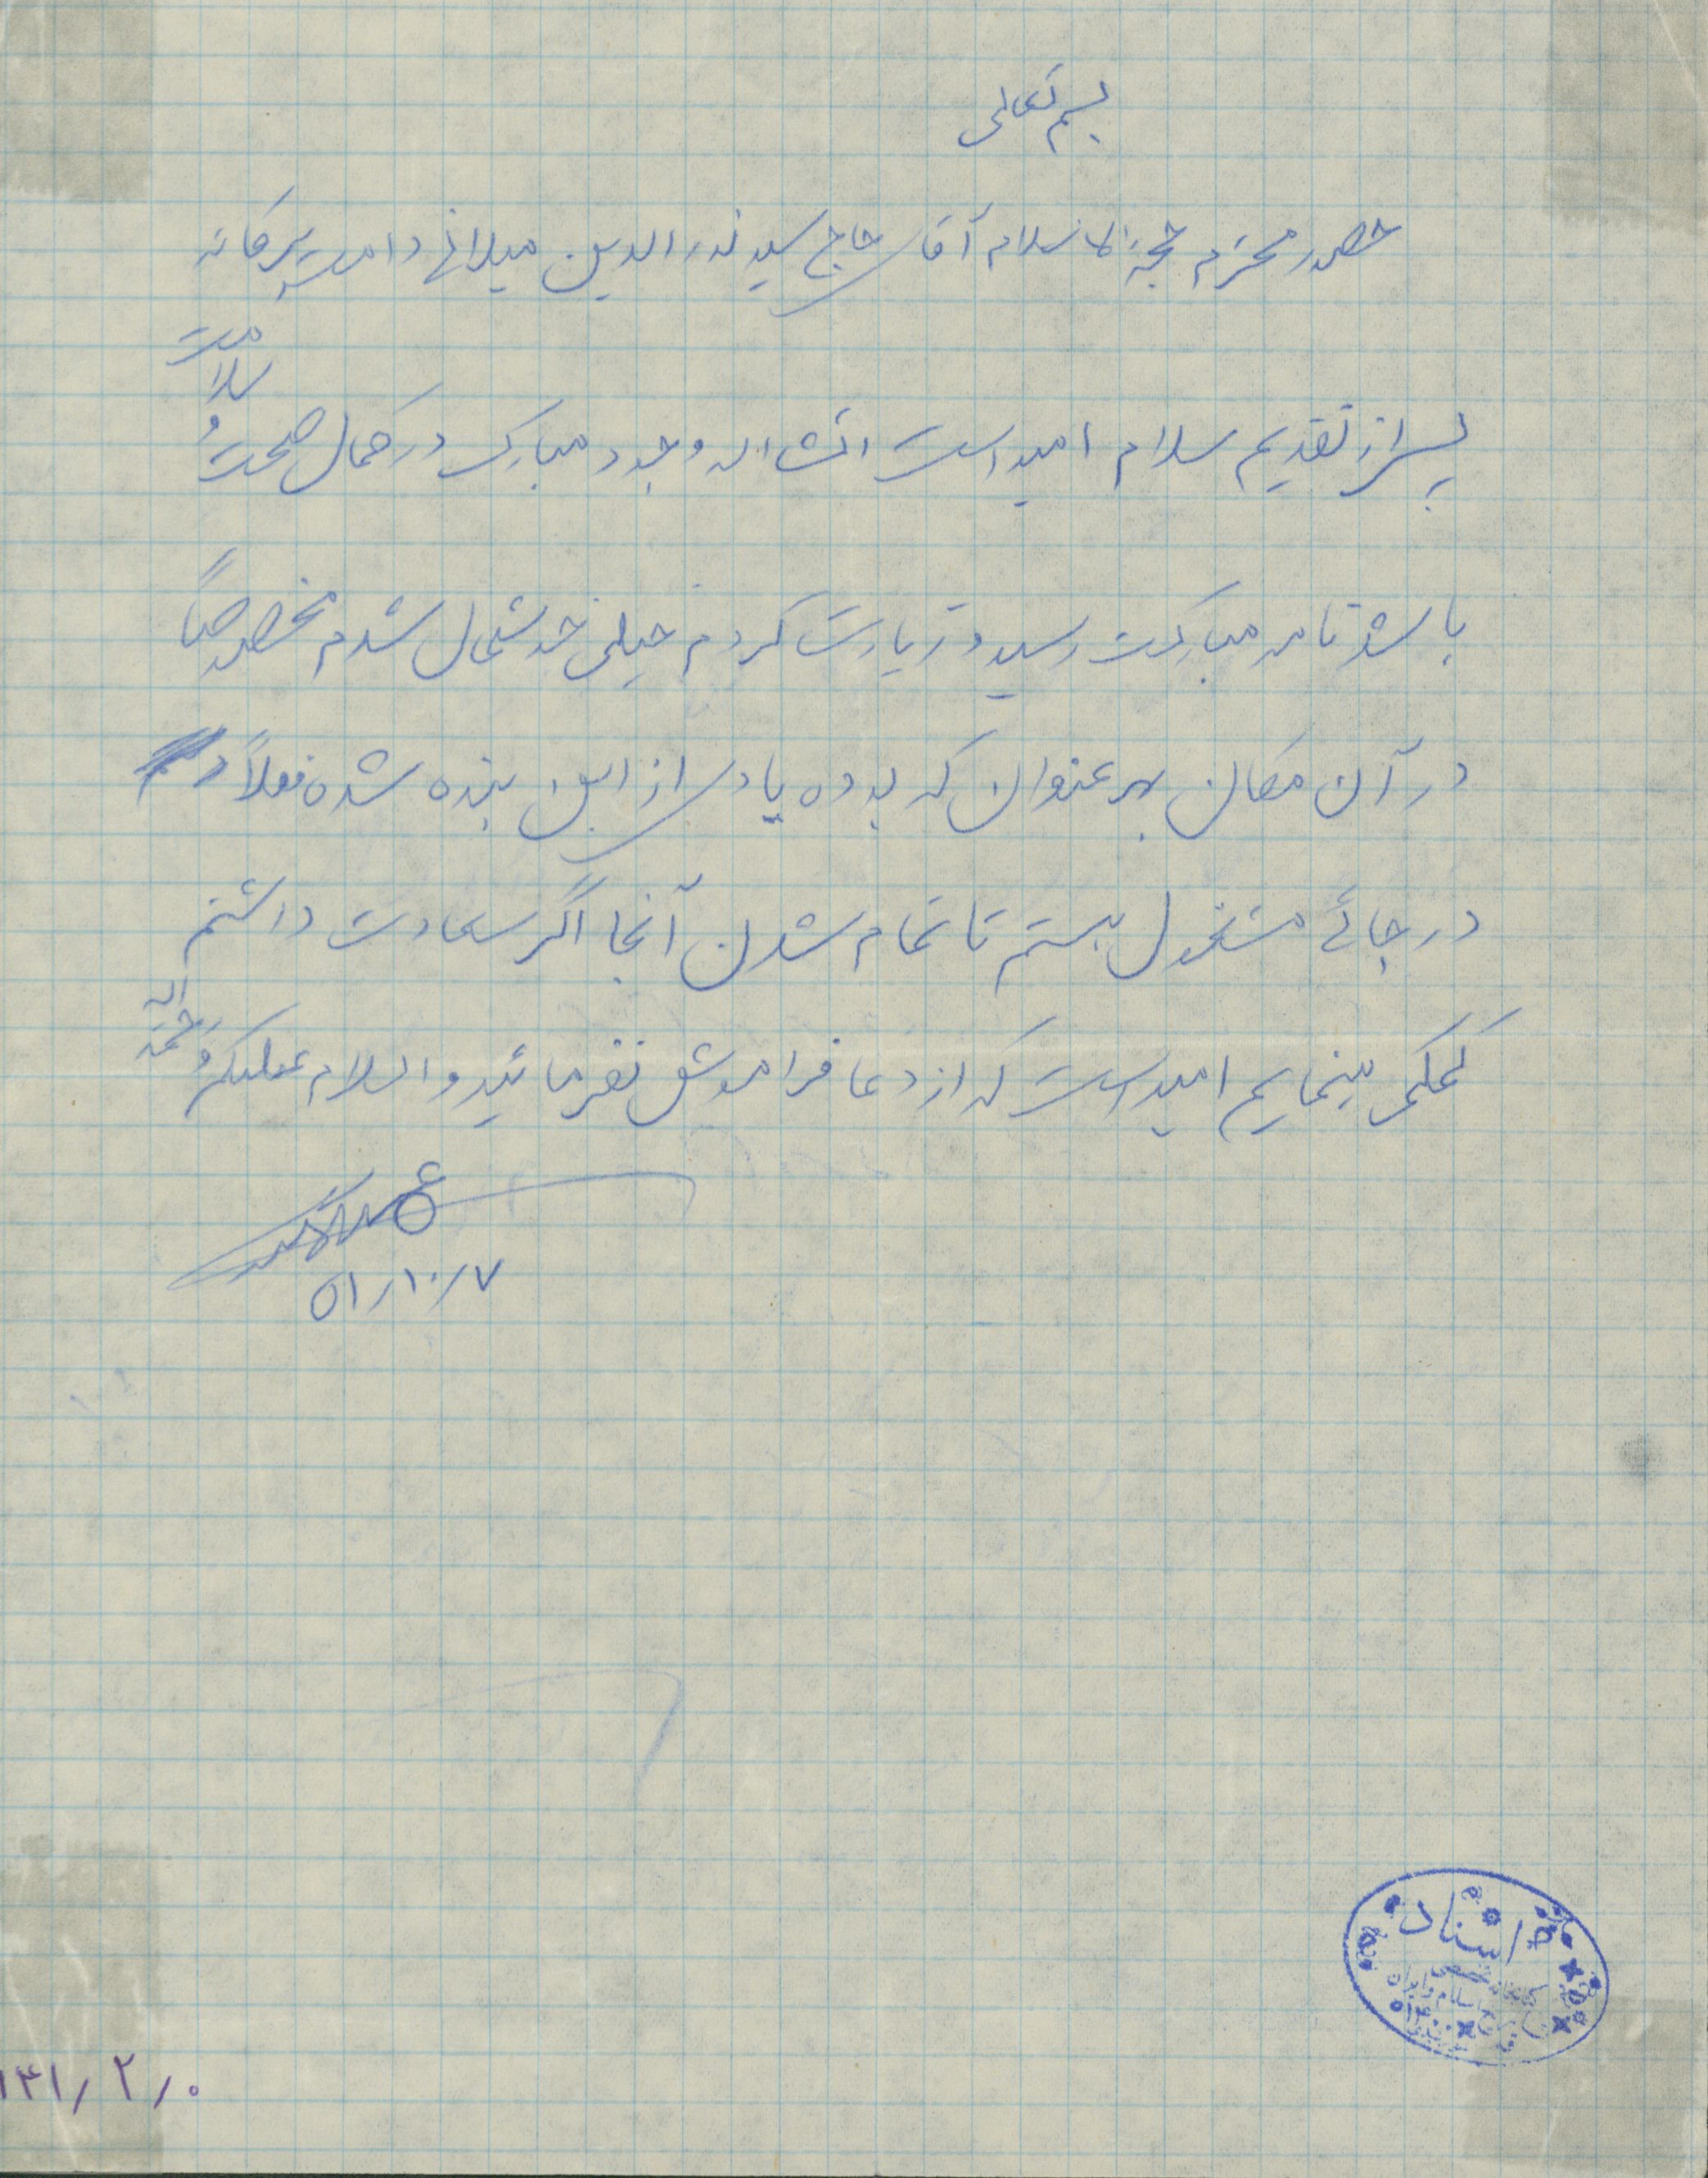 بسم تعالی
حضور محترم حجة الاسلام آقای حاج سید نورالدین میلانی دامت برکاته
پس از تقدیم سلام امید است انشاءاله وجود مبارک در کمال صحت و سلامت
باشد نامه مبارکت رسید و زیارت کردم خیلی خوشحال شدم مخصوصاً
در آن مکان بهر عنوان که بوده یادی از این بنده شده فعلاً
در جائی مشغول هستم تا تمام شدن آنجا اگر سعادت داشتم
کمکی مینمایم امید است که از دعا فراموش نفرمائید والسلام علیکم و رحمة اله
۵۱/۱۰/۷
اسناد
کتابخانه تخصصی
تاریخ اسلام و ایران
۱۳۱/۲/۰